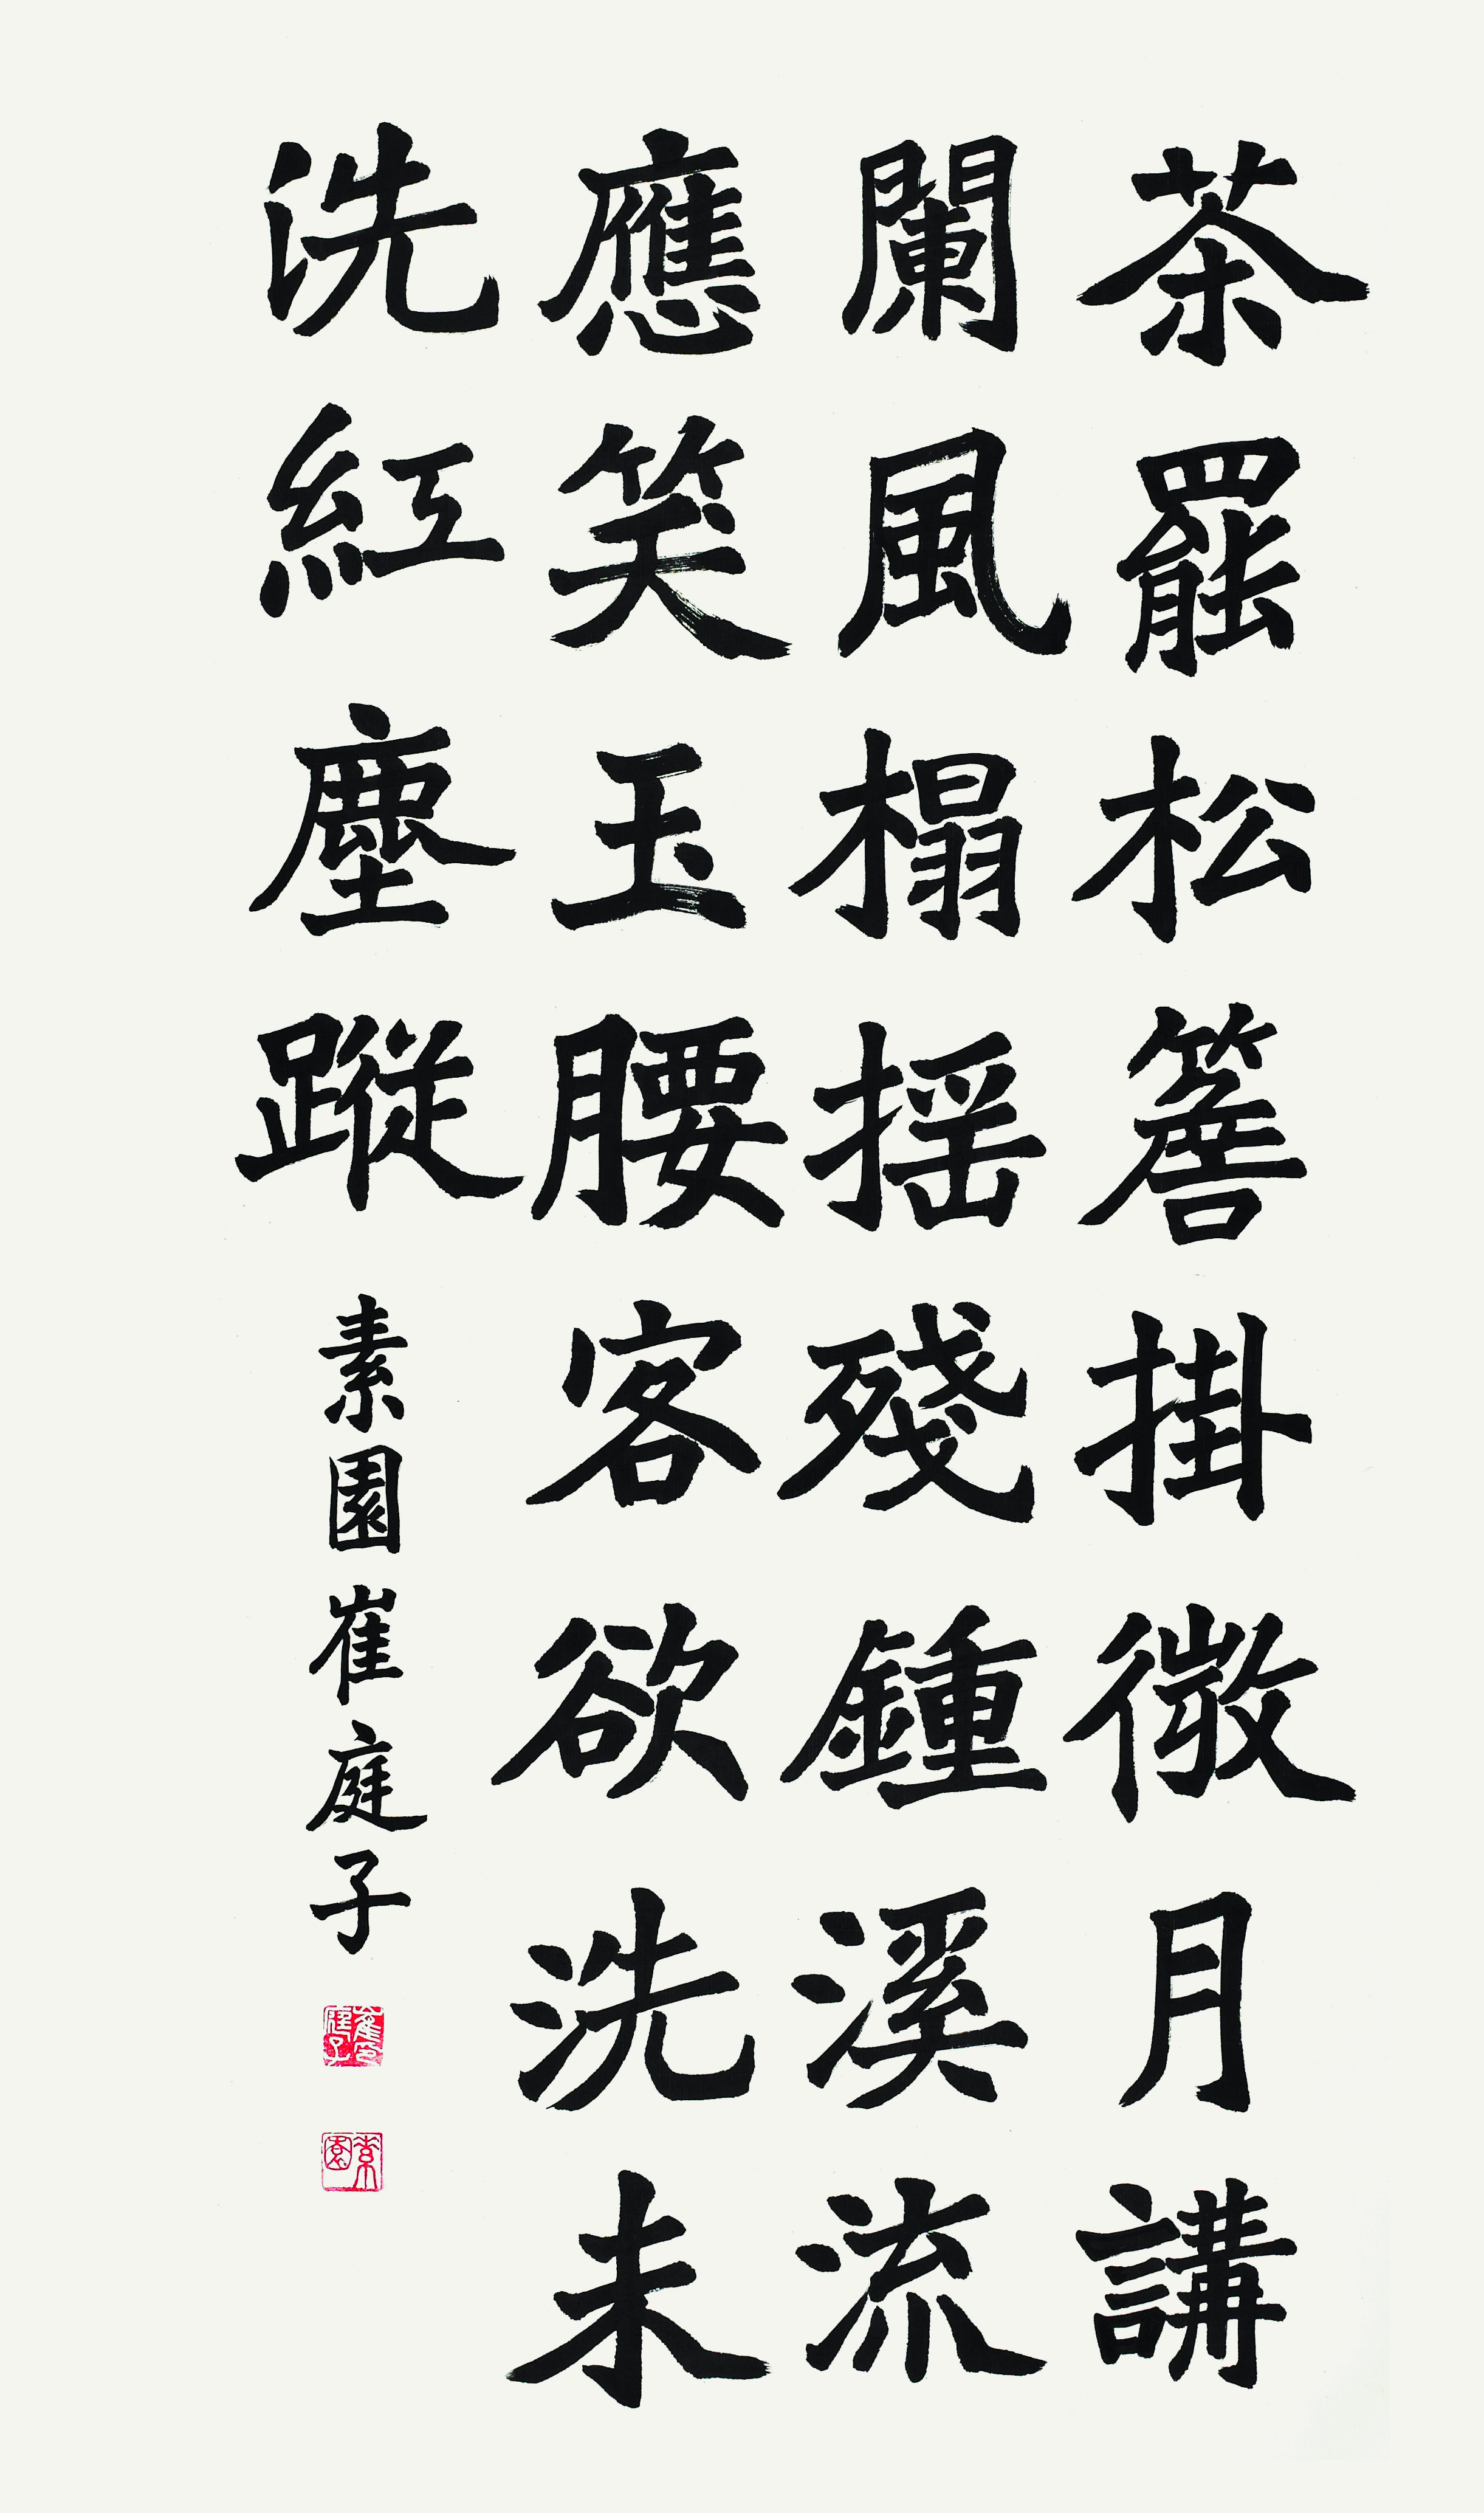 茶罷松簷掛微月講
闌風榻搖殘鍾溪流
應笑玉腰客欲洗未
洗紅塵蹤
素園崔庭子
崔庭子印
素園